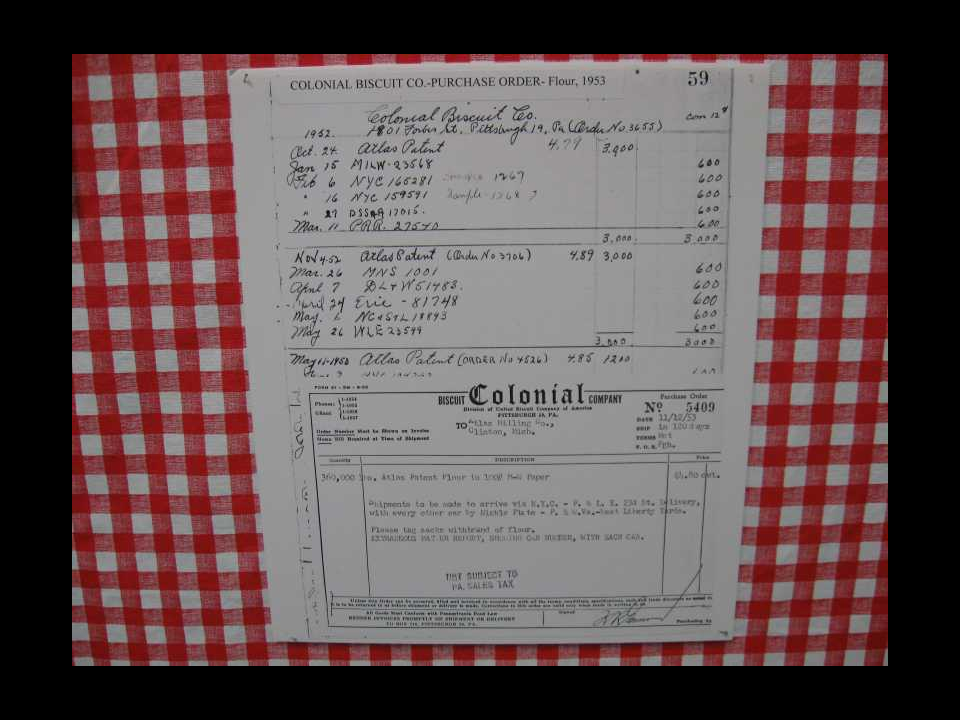 COLONIAL BISCUIT CO.-PURCHASE ORDER- Flour, 1953 59
Colonial Biscuit Co.
1952. 1801 Forbes St. Pittsburgh 19, Pa (Order No 3655)
Oct. 24 Atlas Patent 4.79 3,000
Jan 15 MILW-23568 600
Feb 6 NYC 165281 1267 600
" 16 NYC 159591 Sample 1268 ? 600
" 27 17015. 600
Mar. 11 PRR. 27540 600
3,000 3000
Nov 4-52 Atlas Patent (Order No 3706) 4.89 3,000
Mar. 26 MNS 1001 600
April 7 DL+W 51483. 600
April 24 Erie - 81748 600
May. 6 NC+StL 18893 600
May 26 WLE 23599 600
3,000 3000
May 11-1953 Atlas Patent (ORDER No 4526) 4.85 1200
BISCUIT Colonial COMPANY
Division of United Biscuit Company of America
PITTSBURGH 19, PA.
Purchase Order
No 5409
Phones:
TO Atlas Milling Co.,
Clinton, Mich.
DATE 11/12/53
SHIP in 120 days
TERMS Net
F. O. B. Pgh.
Order Number Must be Shown on Invoice
Items Still Required at Time of Shipment
Quantity DESCRIPTION Price
360,000 lbs. Atlas Patent Flour in 100# Paper $4.80 cwt.
Shipments to be made to arrive via N.Y.C. - P. & L. E. 23d St. Delivery,
with every other car by Nickle Plate - P. & W.Va.-West Liberty Yards.
Please tag sacks withbrand of flour.
EXTRANEOUS MATTER REPORT, SHOWING CAR NUMBER, WITH EACH CAR.
NOT SUBJECT TO
PA. SALES TAX
All Goods Must Conform with Pennsylvania Food Law
RENDER INVOICES PROMPTLY ON SHIPMENT OR DELIVERY
TO BOX 110, PITTSBURGH 19, PA.
Signed
Purchasing